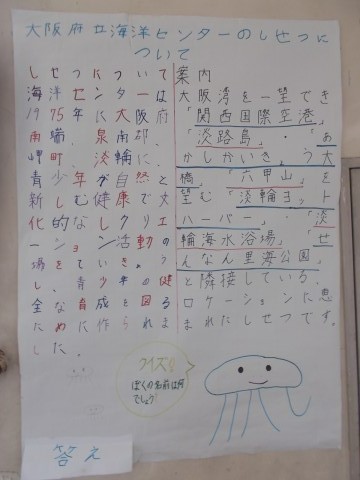 大阪府立海洋センターのしせつに
ついて
しせつについて
海洋センターは
1975年に大阪府
南端、泉南郡、
岬町、淡輪に、
青少年が自然と
親しむ健康で文
化的なレクリエ
ーション活動の
場をていきょう
し、青少年の健
全な育成を図る
ために作られま
した。
案内
大阪湾を一望でき
「関西国際空港」
「淡路島」・「あ
かしかいきょう大
橋」「六甲山」を
望む「淡輪ヨット
ハーバー」・「淡
輪海水浴場」「せ
んなん里海公園」
と隣接している、
ロケーションに恵
まれたしせつです。
クイズ!
ぼくの名前は何
でしょう?
答え